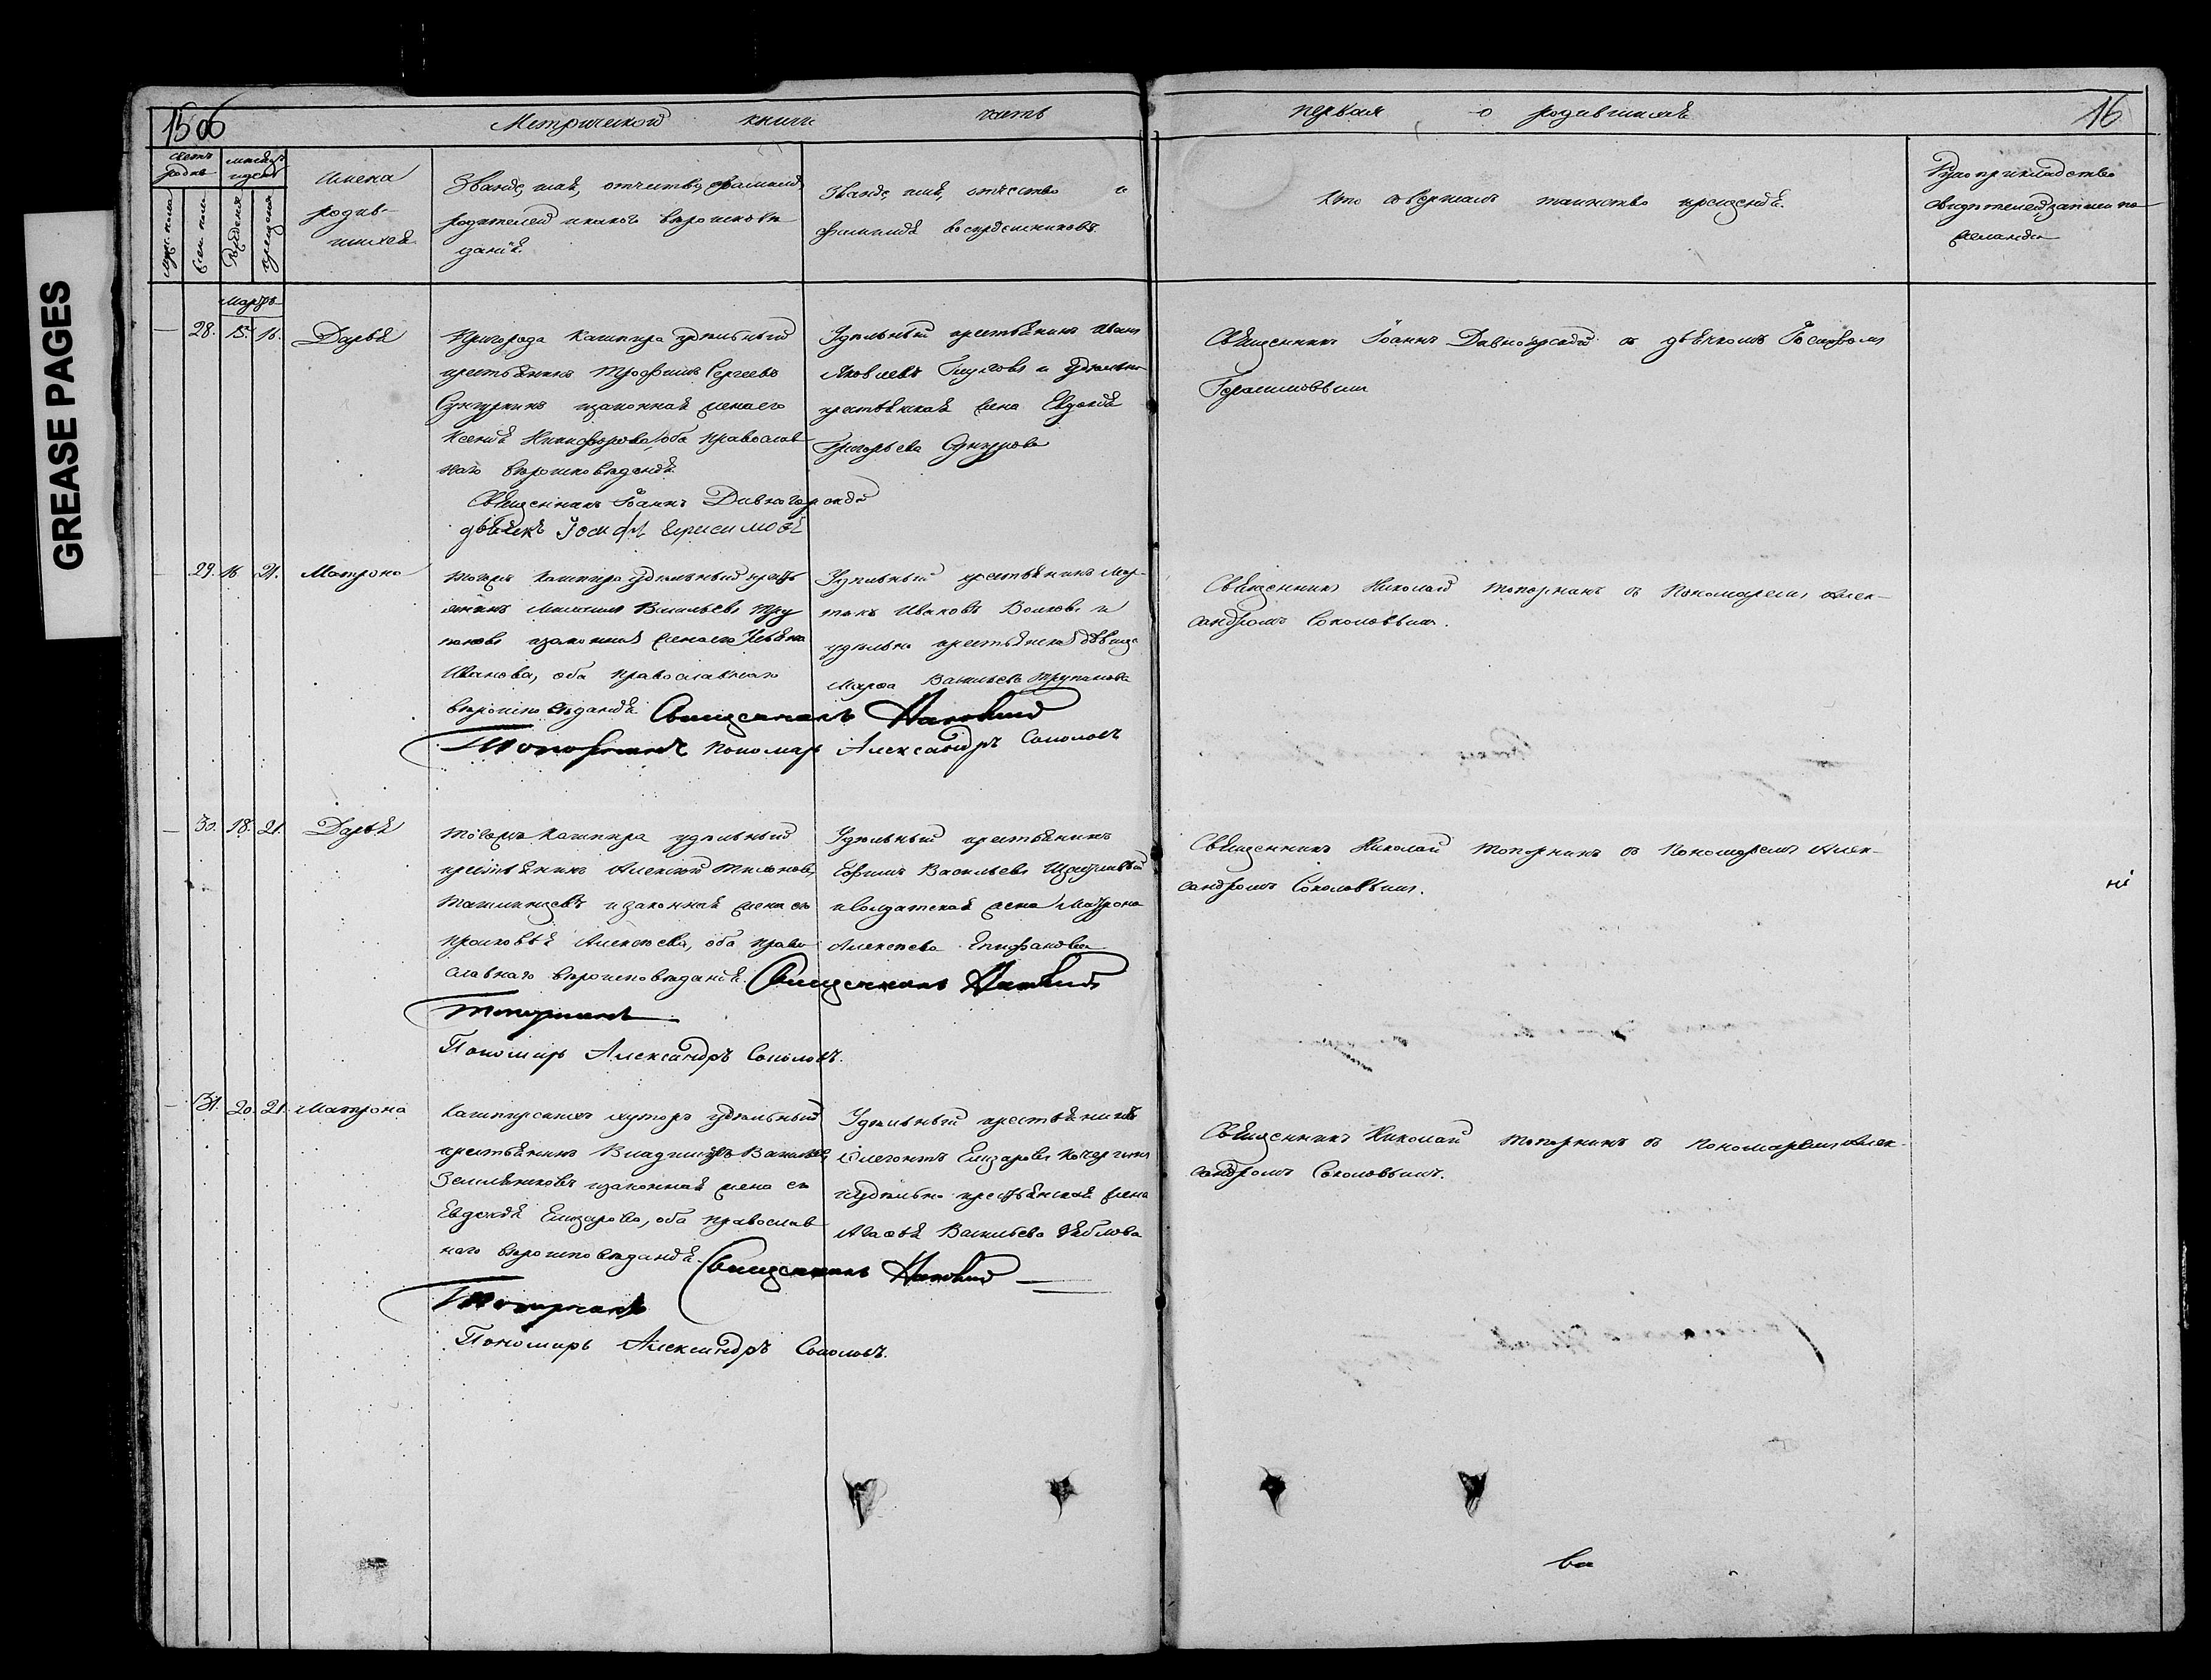 GREASE PAGES
15 об
Метрической книги часть
первая о родившихся
16
счетъ родив
мѣсяцъ и день
муж. пола
жен. пола
рожденія
крещенія
Имена
родив-
шихся
Званіе, имя, отчество, фамилія
родителей и какого вѣроиспове
данія
Званіе, имя, отчество и
фамилія воспріемниковъ.
Кто совершалъ таинство крещенія.
Рукоприкладство
свидѣтелей записи по
желанію
Мартъ
— 28. 15. 16. Дарья
Пригорода Кашпира удѣльный
крестьянинъ Трофимъ Сергеевъ
и законная жена его
Ксенія Никифорова, оба православ
наго вѣроисповеданія
Священникъ Іоаннъ
дьячекъ Іосифъ
Удѣльный крестьянинъ Иванъ
Яковлевъ и удѣльно
крестьянская жена Евдокія
Григорьева
Священникъ Іоаннъ съ дьячкомъ Іосифомъ
Герасимовымъ
29. 16. 21. Матрона
Тогожъ Кашпира удѣльный кресть
янинъ Васильевъ Тру
пановъ и законная жена его Ульяна
Иванова, оба православнаго
вѣроисповеданія Священникъ Николай
Топорнинъ Пономарь Александръ Соколовъ
Удѣльный крестьянинъ Мар-
тынъ Ивановъ Волковъ и
удѣльно крестьянская дѣвица
Марѳа Васильева Трупанова
Священникъ Николай Топорнинъ съ Пономаремъ Алек-
сандромъ Соколовымъ.
— 30. 18. 21. Дарья
Тогожъ Кашпира удѣльный
крестьянинъ Алексей
Ташлинцевъ и законная жена ево
Прасковья Алексеева, оба право
славнаго вѣроисповеданія. Священникъ Николай
Топорнинъ
Пономарь Александръ Соколовъ.
Удѣльный крестьянинъ
Ефимъ Васильевъ
и солдатская жена Матрона
Алексеева Епифанова
Священникъ Николай Топорнинъ съ Пономаремъ Алек-
сандромъ Соколовымъ.
— 31. 20. 21. Матрона
Кашпирскихъ хуторъ удѣльный
крестьянинъ Владимиръ Васильевъ
Земляниковъ и законная жена ево
Евдокія Елизарова, оба православ
наго вѣроисповеданія. Священникъ Николай
Топорнинъ
Пономарь Александръ Соколовъ.
Удѣльный крестьянинъ
Елизаровъ Кочергинъ
и удѣльно крестьянская жена
Агаѳья Васильева
Священникъ Николай Топорнинъ съ Пономаремъ Алек-
сандромъ Соколовымъ.